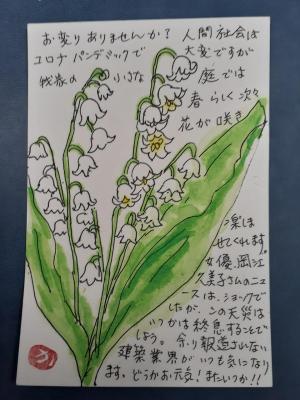 お変りありませんか？ 人間社会は
コロナパンデミックで 大変ですが
我家の 小さな 庭では
春らしく次々
花が咲き
楽しま
せてくれます。
女優、岡江
久美子さんのニュ
ースは、ショックで
したが、この天災は
いつかは終息することで
しょう。余り報道されない
建築業界がいつも気になり
ます。どうかお元気！またいつか!!